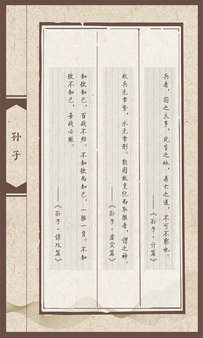 孙子
兵者，国之大事，死生之地，存亡之道，不可不察也。
——《孙子·计篇》
故兵无常势，水无常形。能因敌变化而取胜者，谓之神。
——《孙子·虚实篇》
知彼知己，百战不殆。不知彼而知己，一胜一负。不知
彼不知己，每战必殆。
——《孙子·谋攻篇》